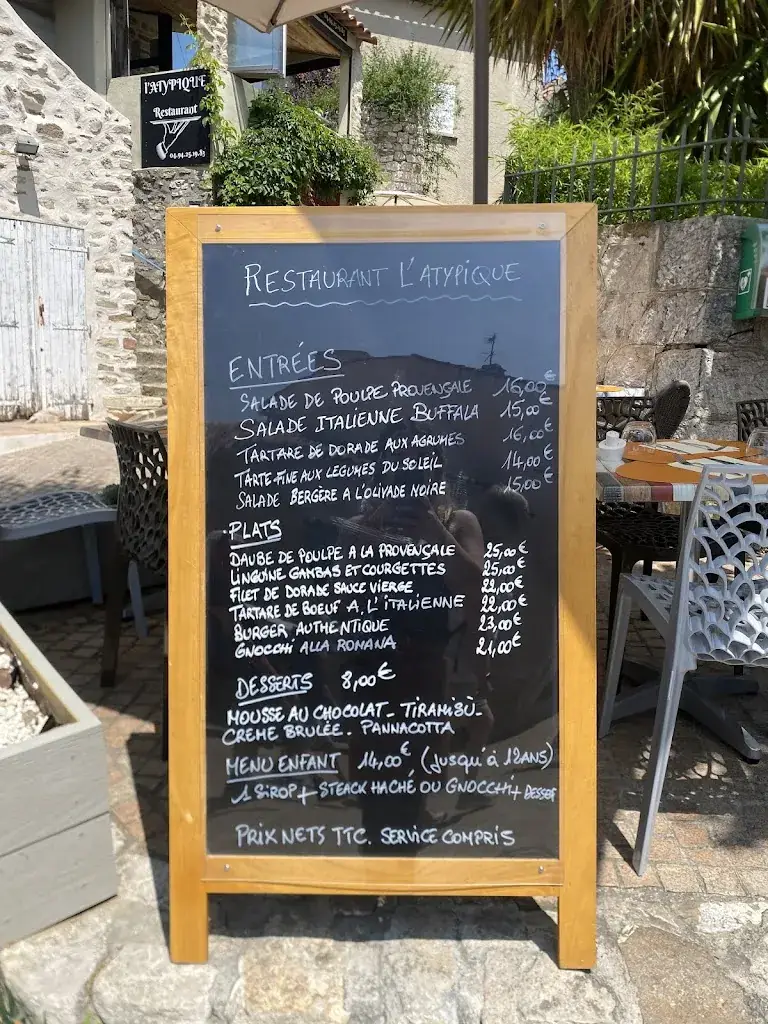 l'ATYPIQUE
Restaurant
04.94.25.19.83
RESTAURANT L'ATYPIQUE
ENTRÉES
SALADE DE POULPE PROVENÇALE 16,00€
SALADE ITALIENNE BUFFALA 15,00€
TARTARE DE DORADE AUX AGRUMES 16,00€
TARTE FINE AUX LEGUMES DU SOLEIL 14,00€
SALADE BERGÈRE A L'OLIVADE NOIRE 15,00€
PLATS
DAUBE DE POULPE A LA PROVENÇALE 25,00€
LINGUINE GAMBAS ET COURGETTES 25,00€
FILET DE DORADE SAUCE VIERGE 22,00€
TARTARE DE BOEUF A L'ITALIENNE 22,00€
BURGER AUTHENTIQUE 23,00€
GNOCCHI ALLA ROMANA 21,00€
DESSERTS 8,00€
MOUSSE AU CHOCOLAT - TIRAMISÙ -
CREME BRULÉE - PANNACOTTA
MENU ENFANT 14,00€ (Jusqu'à 12ANS)
1 SIROP + STEACK HACHÉ OU GNOCCHI + DESSERT
PRIX NETS TTC. SERVICE COMPRIS